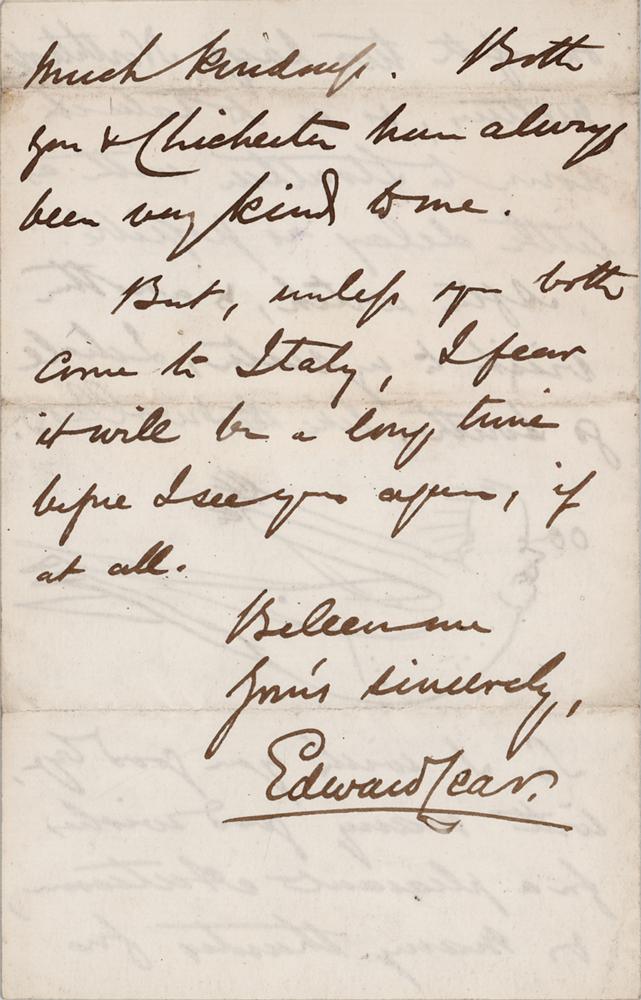 much kindness. Both
you & Chichester have always
been very kind to me.
But, unless you both
come to Italy, I fear
it will be a long time
before I see you again, if
at all.
Believe me
Your's sincerely,
Edward Lear.